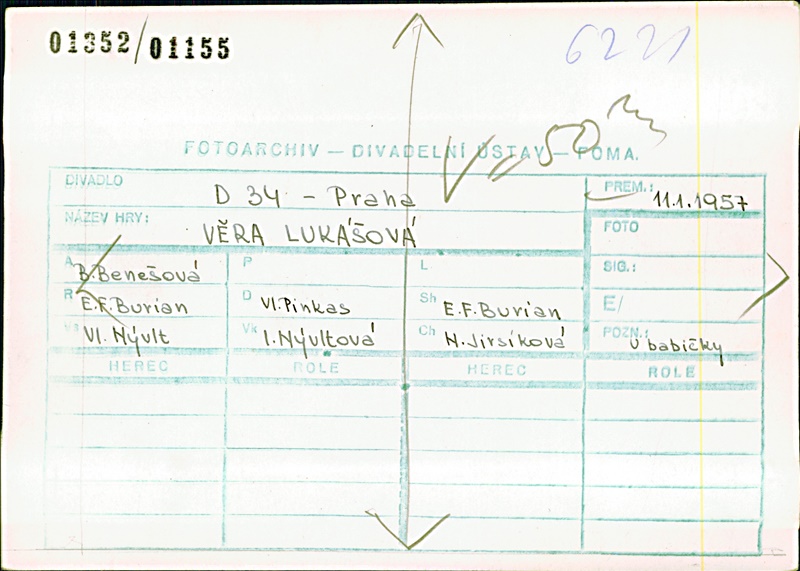 01352/01155
6221
FOTOARCHIV — DIVADELNÍ ÚSTAV — FOMA.
DIVADLO D 34 - Praha PREM.: 11.1.1957
NÁZEV HRY: VĚRA LUKÁŠOVÁ FOTO
A B.Benešová P L SIG.:
R E.F.Burian D Vl.Pinkas Sh E.F.Burian E/
Vs Vl. Nývlt Vk I.Nývltová Ch N.Jirsíková POZN.: U babičky
HEREC ROLE HEREC ROLE